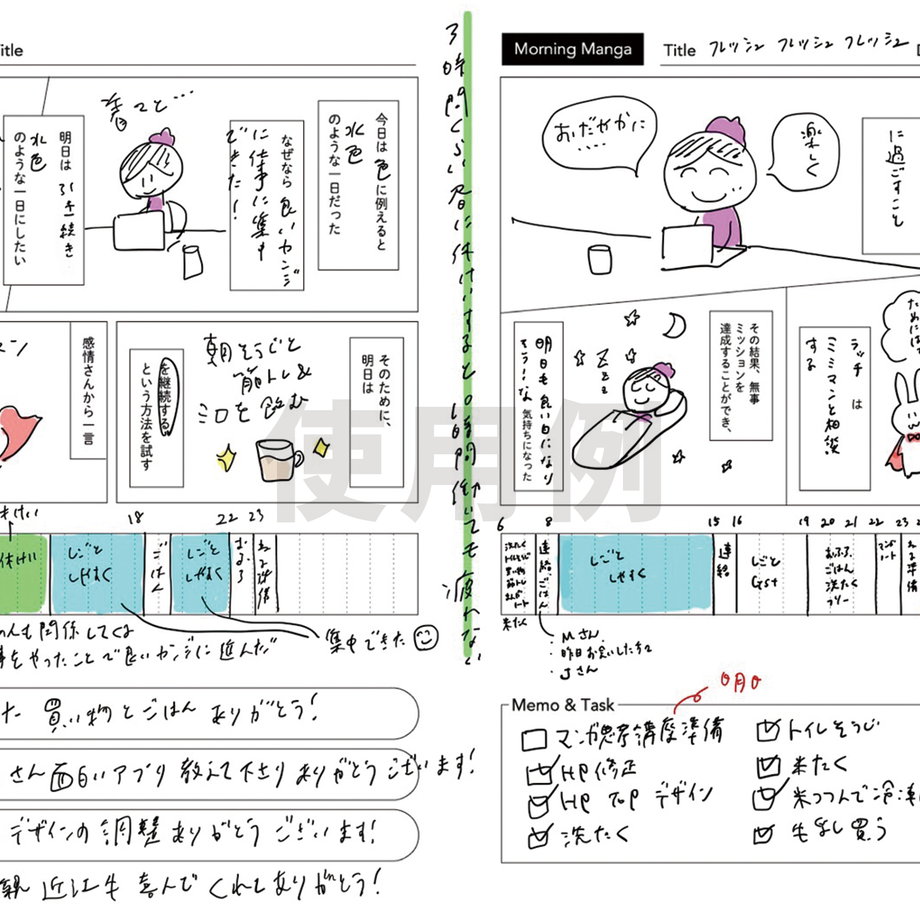 itle
着てと…
今日は色に例えると
水色
のような一日だった
なぜなら良いカンジ
に仕事に集中
できた!
明日は引き続き
水色
のような一日にしたい
そのために、
明日は
朝そうじと
筋トレ&
ミロを飲む
を継続する
という方法を試す
感情さんから一言
休けい
18
22
23
休けい
しごと
しゃすく
ごはん
しごと
しゃすく
おふろ
ねる準備
も関係してくる
をやったことで良いカンジに進んだ
集中できた
た 買い物とごはん ありがとう!
さん面白いアプリ教えて下さりありがとうございます!
デザインの調整ありがとうございます!
親 近江牛 喜んでくれてありがとう!
3時間くらい昼に休けいすると10時間働いても疲れない
Morning Manga
Title フレッシュ フレッシュ フレッシュ
D
おだやかに
....
楽しく
に過ごすこと
ために
ラッチ は
ミミマンと相談
する
その結果、無事
ミッションを
達成することができ、
Zzz
明日も良い日になり
そう!な 気持ちになった
6
8
15
16
19
20
21
22
23
洗たく
筋トレ
連絡
ごはん
しごと
しゃすく
連絡
しごと
Gst
おふろ
ごはん
洗たく
フリー
ねる準備
米たく
・Mさん
・昨日お会いした方々
・Jさん
Memo & Task
〇月〇
マンガ思考講座準備
HP修正
HP TOP デザイン
洗たく
トイレそうじ
米たく
米つつんで冷凍
生ゴミ買う
使用例